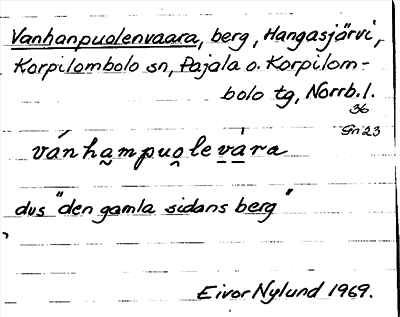 Vanhanpuolenvaara, berg, Hangasjärvi,
Korpilombolo sn, Pajala o. Korpilom-
bolo tg, Norrb. l.
36
Gn 23
vánha̮mpuo̮le vá̱ra
dvs "den gamla sidans berg"
Eivor Nylund 1969.